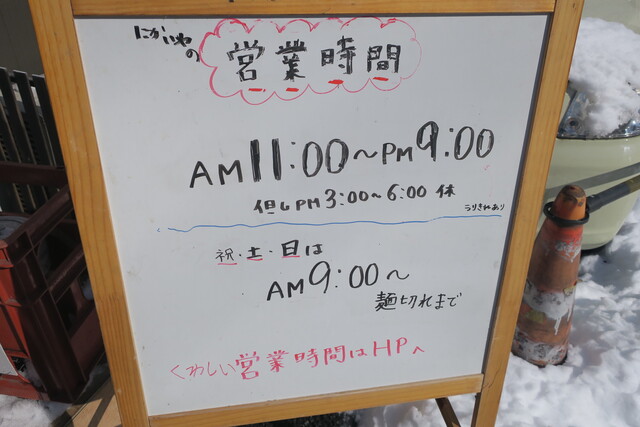 にかいやの
営業時間
AM11:00～PM9:00
但しPM3:00～6:00 休
うりきれあり
祝・土・日は
AM9:00～
麺切れまで
くわしい営業時間はHPへ